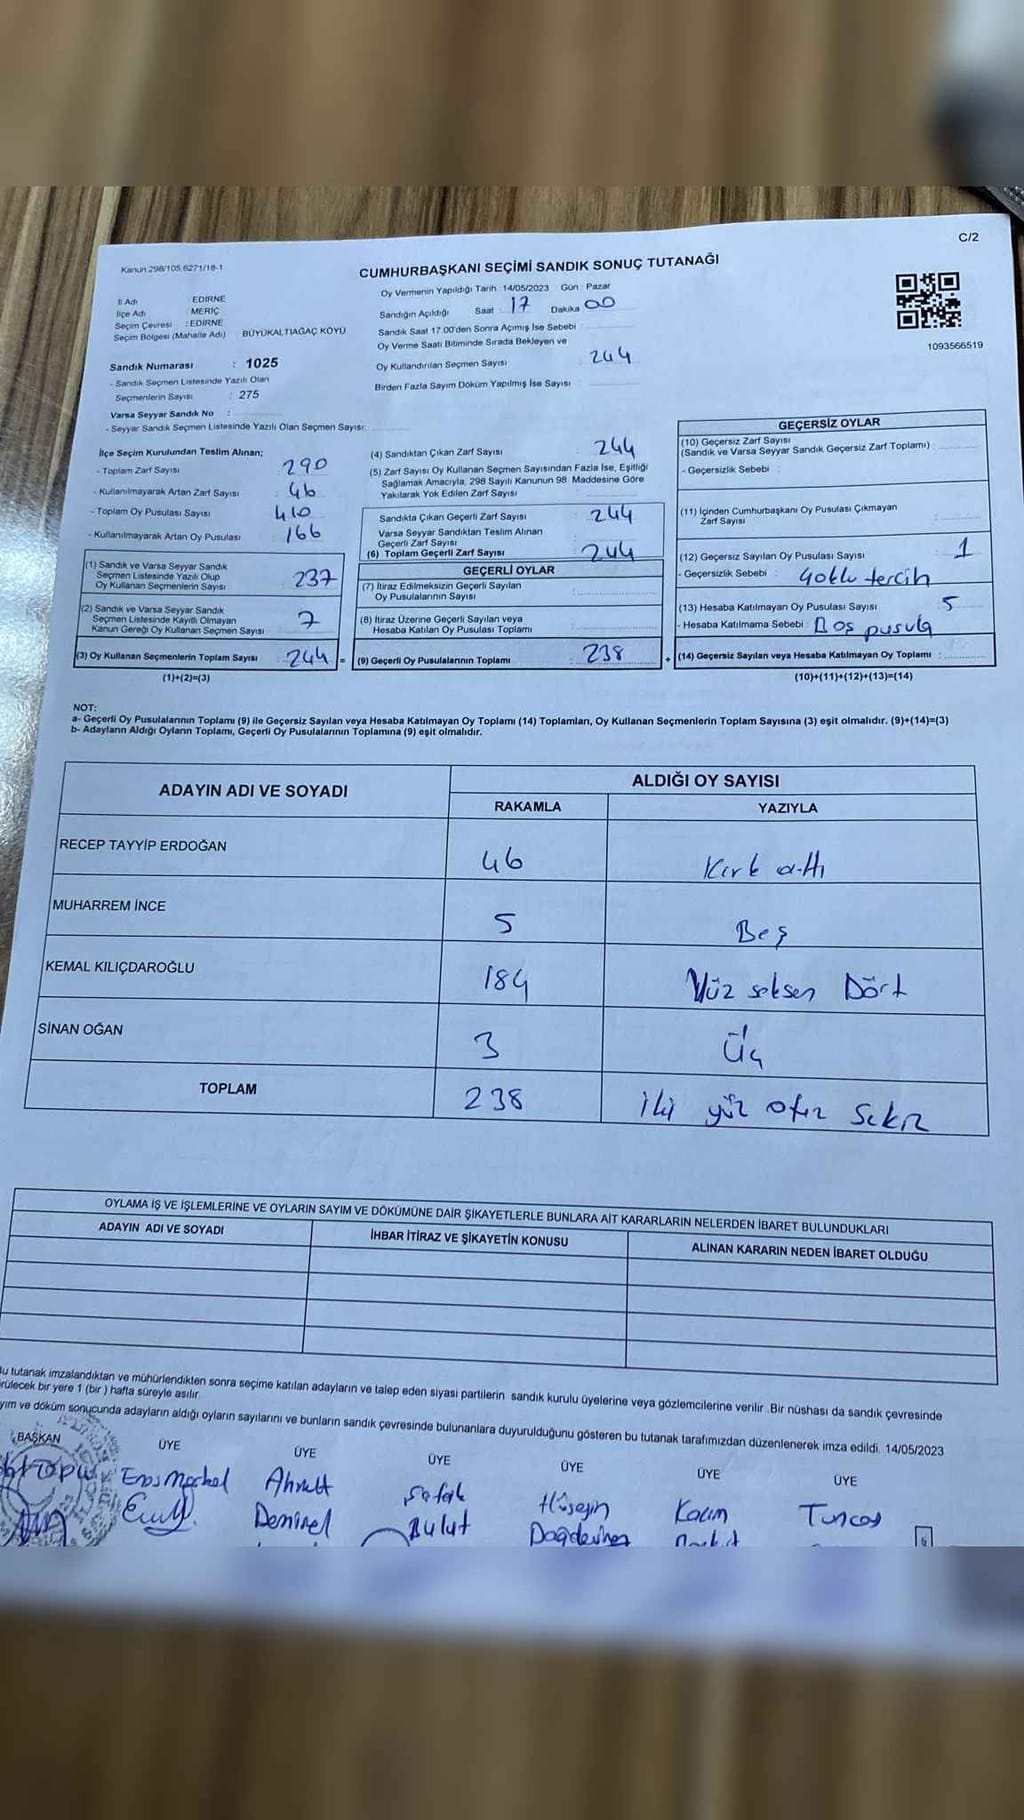 C/2
Kanun 298/105,6271/18-1
CUMHURBAŞKANI SEÇİMİ SANDIK SONUÇ TUTANAĞI
İl Adı : EDİRNE
İlçe Adı MERİÇ
Seçim Çevresi : EDİRNE
Seçim Bölgesi (Mahalle Adı) BÜYÜKALTIAĞAÇ KÖYÜ
Oy Vermenin Yapıldığı Tarih : 14/05/2023 Gün : Pazar
Sandığın Açıldığı Saat 17 Dakika 00
Sandık Saat 17.00'den Sonra Açımış İse Sebebi
Oy Verme Saati Bitiminde Sırada Bekleyen ve
Oy Kullandırılan Seçmen Sayısı : 244
Birden Fazla Sayım Döküm Yapılmış İse Sayısı :
1093566519
Sandık Numarası : 1025
- Sandık Seçmen Listesinde Yazılı Olan
Seçmenlerin Sayısı : 275
Varsa Seyyar Sandık No :
- Seyyar Sandık Seçmen Listesinde Yazılı Olan Seçmen Sayısı:
İlçe Seçim Kurulundan Teslim Alınan;
- Toplam Zarf Sayısı 290
- Kullanılmayarak Artan Zarf Sayısı 46
- Toplam Oy Pusulası Sayısı 410
- Kullanılmayarak Artan Oy Pusulası 166
(1) Sandık ve Varsa Seyyar Sandık
Seçmen Listesinde Yazılı Olup
Oy Kullanan Seçmenlerin Sayısı 237
(2) Sandık ve Varsa Seyyar Sandık
Seçmen Listesinde Kayıtlı Olmayan
Kanun Gereği Oy Kullanan Seçmen Sayısı 7
(3) Oy Kullanan Seçmenlerin Toplam Sayısı : 244 =
(1)+(2)=(3)
(4) Sandıktan Çıkan Zarf Sayısı : 244
(5) Zarf Sayısı Oy Kullanan Seçmen Sayısından Fazla İse, Eşitliği
Sağlamak Amacıyla, 298 Sayılı Kanunun 98. Maddesine Göre
Yakılarak Yok Edilen Zarf Sayısı :
Sandıkta Çıkan Geçerli Zarf Sayısı : 244
Varsa Seyyar Sandıktan Teslim Alınan
Geçerli Zarf Sayısı :
(6) Toplam Geçerli Zarf Sayısı : 244
GEÇERLİ OYLAR
(7) İtiraz Edilmeksizin Geçerli Sayılan
Oy Pusulalarının Sayısı :
(8) İtiraz Üzerine Geçerli Sayılan veya
Hesaba Katılan Oy Pusulası Toplamı :
(9) Geçerli Oy Pusulalarının Toplamı : 238 +
GEÇERSİZ OYLAR
(10) Geçersiz Zarf Sayısı
(Sandık ve Varsa Seyyar Sandık Geçersiz Zarf Toplamı) :
- Geçersizlik Sebebi :
(11) İçinden Cumhurbaşkanı Oy Pusulası Çıkmayan
Zarf Sayısı :
(12) Geçersiz Sayılan Oy Pusulası Sayısı : 1
- Geçersizlik Sebebi : Çoklu tercih
(13) Hesaba Katılmayan Oy Pusulası Sayısı : 5
- Hesaba Katılmama Sebebi : Boş pusula
(14) Geçersiz Sayılan veya Hesaba Katılmayan Oy Toplamı :
(10)+(11)+(12)+(13)=(14)
NOT:
a- Geçerli Oy Pusulalarının Toplamı (9) ile Geçersiz Sayılan veya Hesaba Katılmayan Oy Toplamı (14) Toplamları, Oy Kullanan Seçmenlerin Toplam Sayısına (3) eşit olmalıdır. (9)+(14)=(3)
b- Adayların Aldığı Oyların Toplamı, Geçerli Oy Pusulalarının Toplamına (9) eşit olmalıdır.
ADAYIN ADI VE SOYADI
ALDIĞI OY SAYISI
RAKAMLA YAZIYLA
RECEP TAYYİP ERDOĞAN 46 Kırk altı
MUHARREM İNCE 5 Beş
KEMAL KILIÇDAROĞLU 184 Yüz seksen Dört
SİNAN OĞAN 3 Üç
TOPLAM 238 iki yüz otuz Sekiz
OYLAMA İŞ VE İŞLEMLERİNE VE OYLARIN SAYIM VE DÖKÜMÜNE DAİR ŞİKAYETLERLE BUNLARA AİT KARARLARIN NELERDEN İBARET BULUNDUKLARI
ADAYIN ADI VE SOYADI İHBAR İTİRAZ VE ŞİKAYETİN KONUSU ALINAN KARARIN NEDEN İBARET OLDUĞU
Bu tutanak imzalandıktan ve mühürlendikten sonra seçime katılan adayların ve talep eden siyasi partilerin sandık kurulu üyelerine veya gözlemcilerine verilir .Bir nüshası da sandık çevresinde
rülecek bir yere 1 (bir ) hafta süreyle asılır.
yım ve döküm sonucunda adayların aldığı oyların sayılarını ve bunların sandık çevresinde bulunanlara duyurulduğunu gösteren bu tutanak tarafımızdan düzenlenerek imza edildi. 14/05/2023
BAŞKAN ÜYE ÜYE ÜYE ÜYE ÜYE ÜYE
Ahmet Şafak Hüseyin Kazım Tuncay
Demirel Bulut